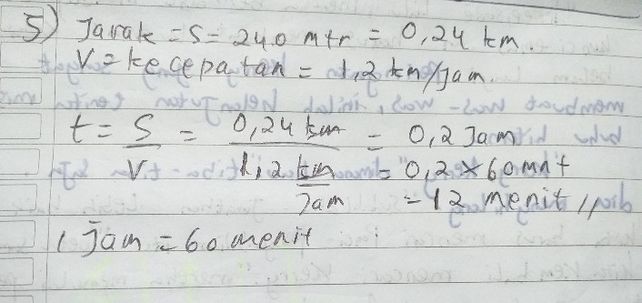 5) Jarak = S = 240 mtr = 0,24 km.
V = kecepatan = 1,2 km/jam
t = S/V = 0,24 km / 1,2 km/Jam = 0,2 Jam
= 0,2 x 60 mnt
= 12 menit //
1 Jam = 60 menit